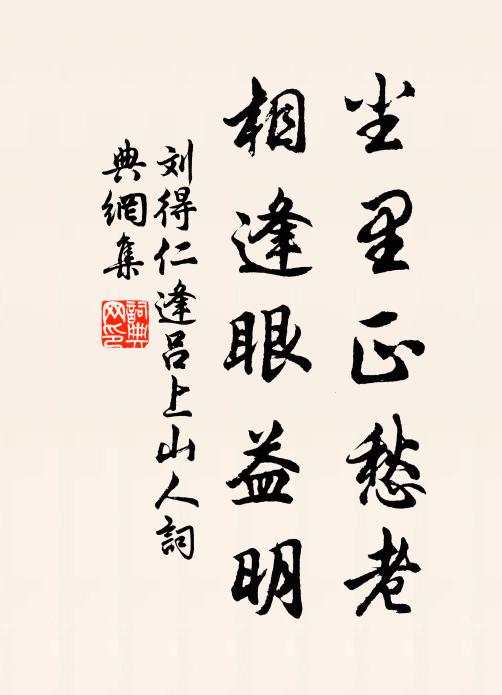 尘里正愁老
相逢眼益明
刘得仁逢吕上山人词
典網集
詞典
网印